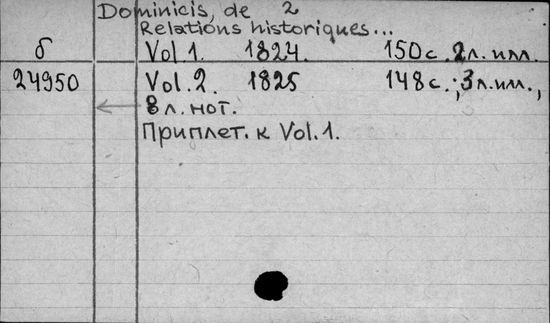 Dominicis, de 2
Relations historiques...
б Vol.1. 1824. 150с. 2л. илл.
24950 Vol.2. 1825 148с.; 3л. илл.,
8 л. нот.
Приплет. к Vol.1.